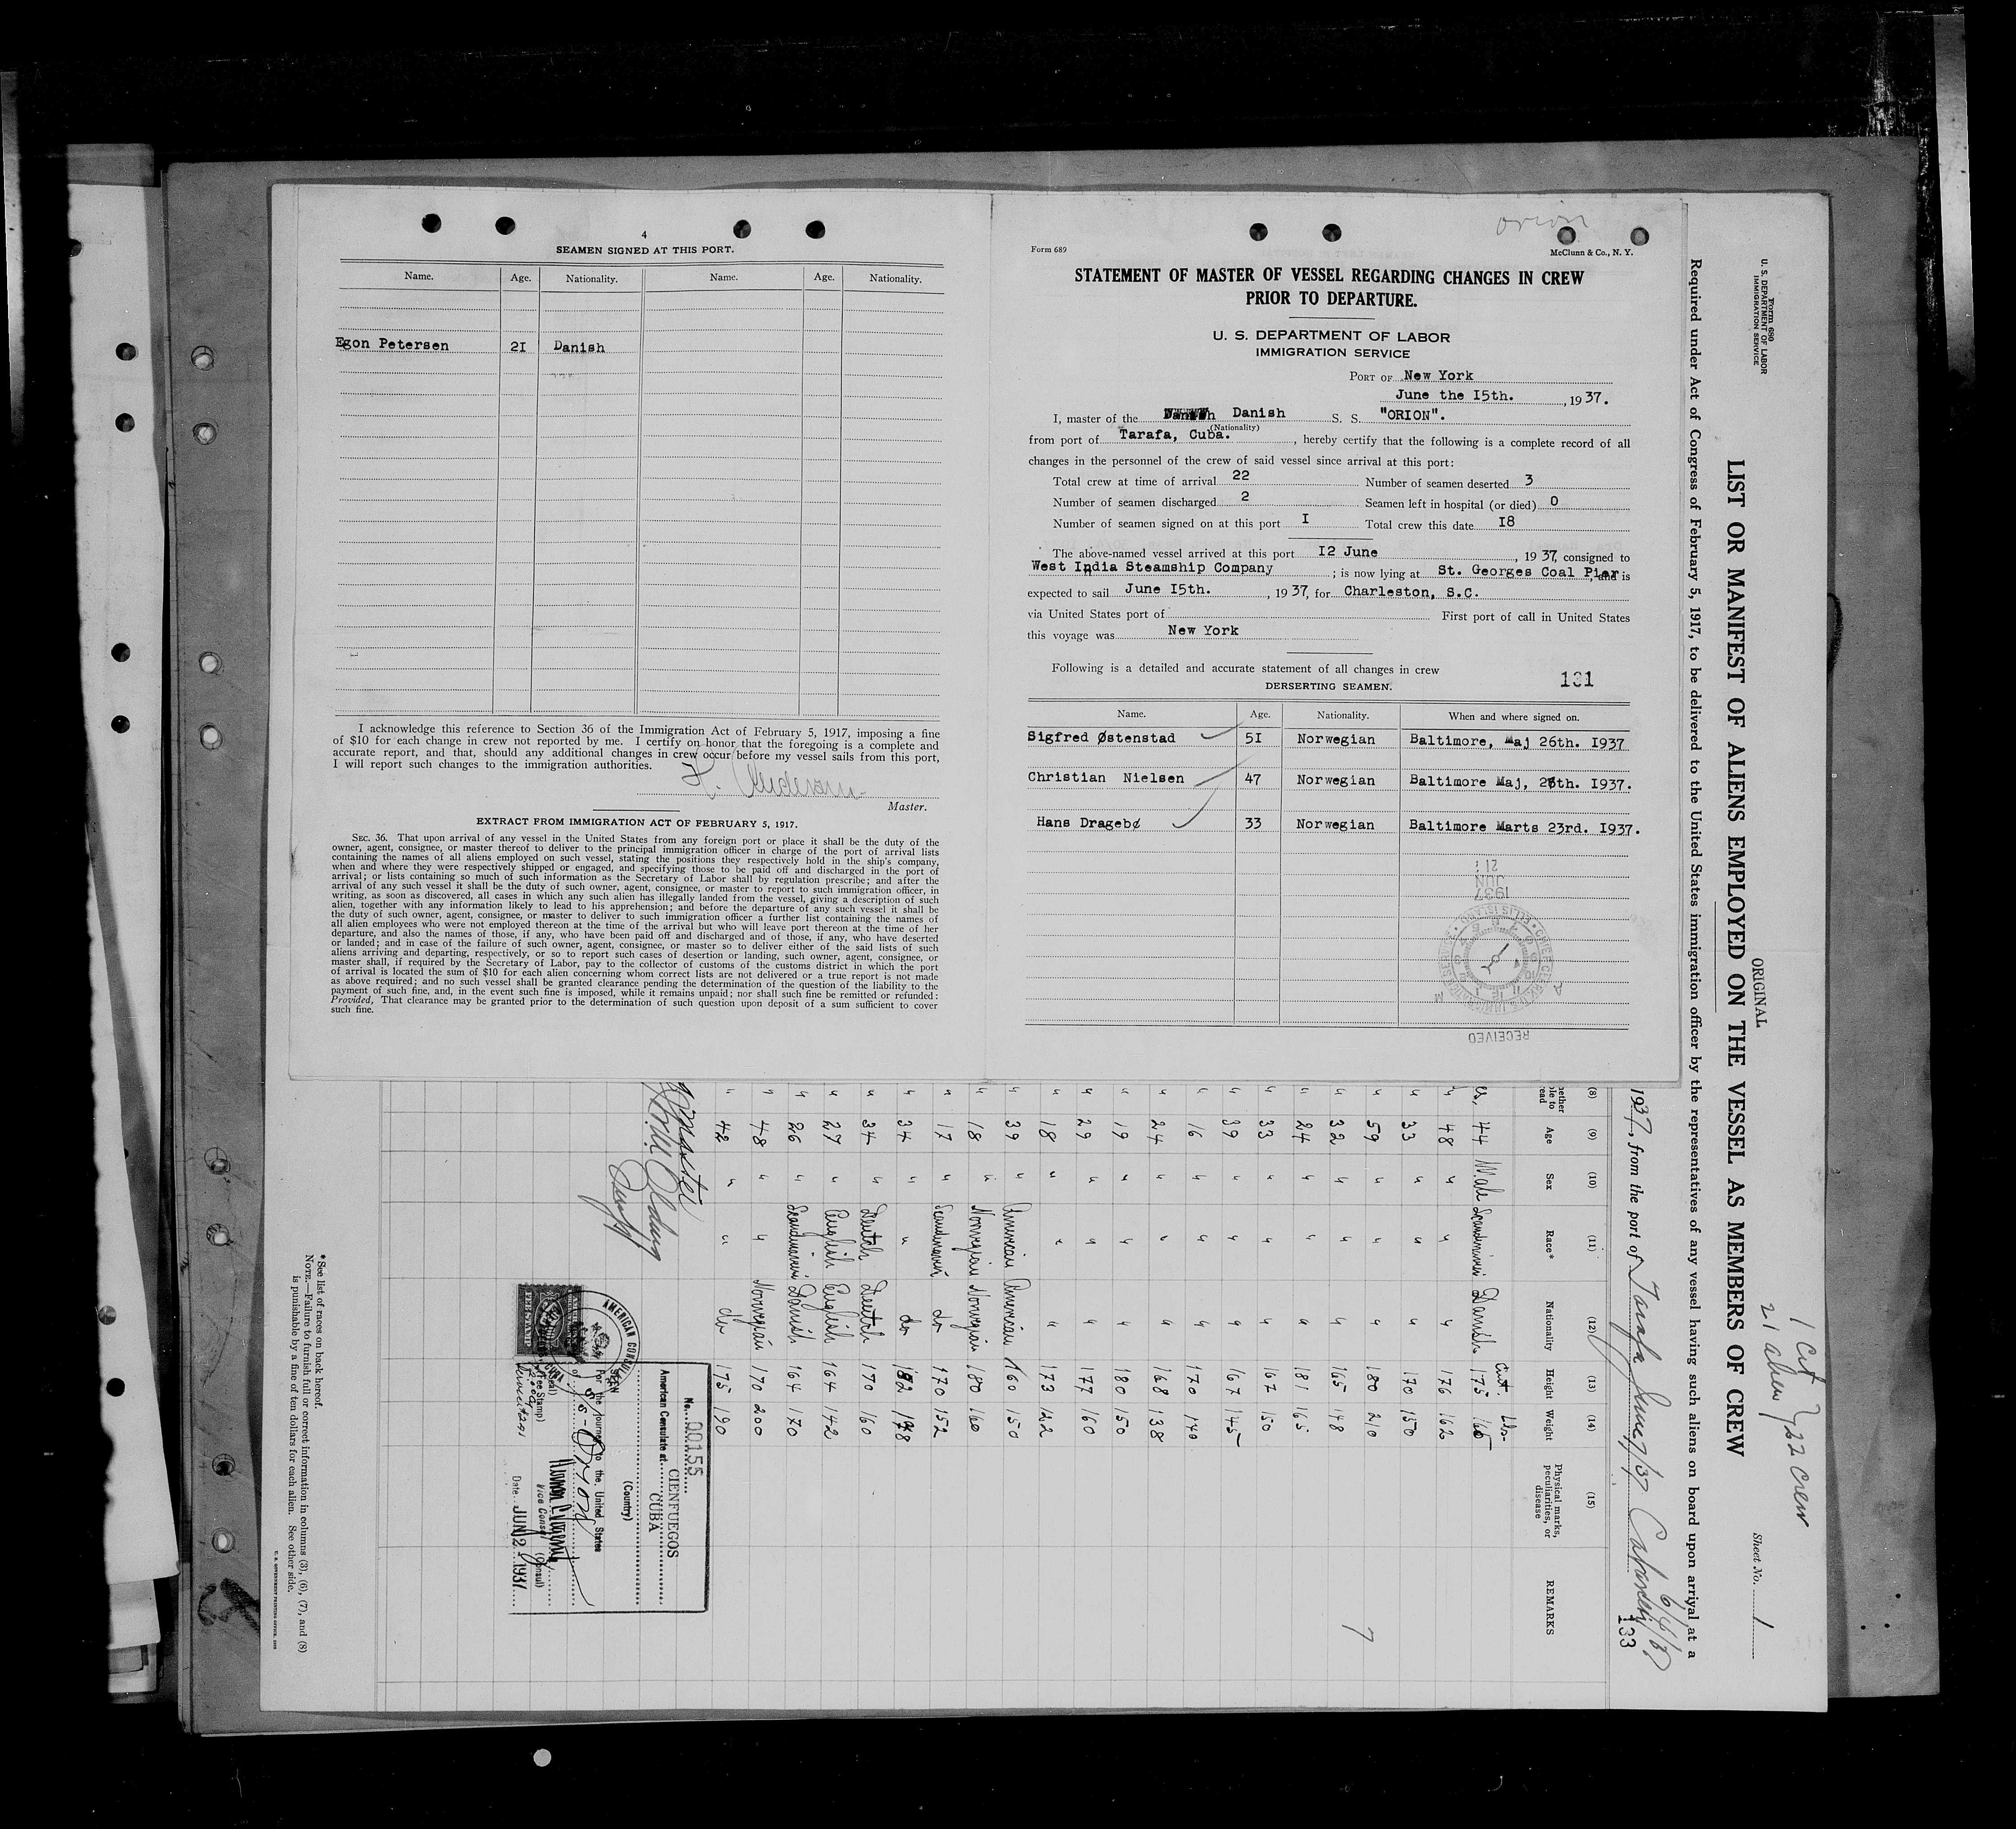 4
SEAMEN SIGNED AT THIS PORT.
Name. Age. Nationality. Name. Age. Nationality.
Egon Petersen 2I Danish
I acknowledge this reference to Section 36 of the Immigration Act of February 5, 1917, imposing a fine
of $10 for each change in crew not reported by me. I certify on honor that the foregoing is a complete and
accurate report, and that, should any additional changes in crew occur before my vessel sails from this port,
I will report such changes to the immigration authorities.
Master.
EXTRACT FROM IMMIGRATION ACT OF FEBRUARY 5, 1917.
SEC. 36. That upon arrival of any vessel in the United States from any foreign port or place it shall be the duty of the
owner, agent, consignee, or master thereof to deliver to the principal immigration officer in charge of the port of arrival lists
containing the names of all aliens employed on such vessel, stating the positions they respectively hold in the ship's company,
when and where they were respectively shipped or engaged, and specifying those to be paid off and discharged in the port of
arrival; or lists containing so much of such information as the Secretary of Labor shall by regulation prescribe; and after the
arrival of any such vessel it shall be the duty of such owner, agent, consignee, or master to report to such immigration officer, in
writing, as soon as discovered, all cases in which any such alien has illegally landed from the vessel, giving a description of such
alien, together with any information likely to lead to his apprehension; and before the departure of any such vessel it shall be
the duty of such owner, agent, consignee, or master to deliver to such immigration officer a further list containing the names of
all alien employees who were not employed thereon at the time of the arrival but who will leave port thereon at the time of her
departure, and also the names of those, if any, who have been paid off and discharged and of those, if any, who have deserted
or landed; and in case of the failure of such owner, agent, consignee, or master so to deliver either of the said lists of such
aliens arriving and departing, respectively, or so to report such cases of desertion or landing, such owner, agent, consignee, or
master shall, if required by the Secretary of Labor, pay to the collector of customs of the customs district in which the port
of arrival is located the sum of $10 for each alien concerning whom correct lists are not delivered or a true report is not made
as above required; and no such vessel shall be granted clearance pending the determination of the question of the liability to the
payment of such fine, and, in the event such fine is imposed, while it remains unpaid; nor shall such fine be remitted or refunded:
Provided, That clearance may be granted prior to the determination of such question upon deposit of a sum sufficient to cover
such fine.
orion
Form 689 McClunn & Co., N. Y.
STATEMENT OF MASTER OF VESSEL REGARDING CHANGES IN CREW
PRIOR TO DEPARTURE.
U. S. DEPARTMENT OF LABOR
IMMIGRATION SERVICE
PORT OF New York
June the I5th., 1937.
I, master of the Danish S. S. "ORION".
(Nationality)
from port of Tarafa, Cuba., hereby certify that the following is a complete record of all
changes in the personnel of the crew of said vessel since arrival at this port:
Total crew at time of arrival 22 Number of seamen deserted 3
Number of seamen discharged 2 Seamen left in hospital (or died) 0
Number of seamen signed on at this port I Total crew this date I8
The above-named vessel arrived at this port I2 June, 1937, consigned to
West India Steamship Company; is now lying at St. Georges Coal Pier, and is
expected to sail June I5th., 1937, for Charleston, S.C.
via United States port of First port of call in United States
this voyage was New York
Following is a detailed and accurate statement of all changes in crew
131
DERSERTING SEAMEN.
Name. Age. Nationality. When and where signed on.
Sigfred Østenstad 5I Norwegian Baltimore, Maj 26th. I937
Christian Nielsen 47 Norwegian Baltimore Maj, 26th. I937.
Hans Dragebø 33 Norwegian Baltimore Marts 23rd. I937.
RECEIVED
JUN
1937
Form 680
U. S. DEPARTMENT OF LABOR
IMMIGRATION SERVICE
ORIGINAL
1 Cit
21 alien 22 Crew
Sheet No. 1
LIST OR MANIFEST OF ALIENS EMPLOYED ON THE VESSEL AS MEMBERS OF CREW
Required under Act of Congress of February 5, 1917, to be delivered to the United States immigration officer by the representatives of any vessel having such aliens on board upon arrival at a
1937, from the port of Tarafa June 7/37
133
(8) (9) (10) (11) (12) (13) (14) (15)
Age Sex Race* Nationality Height Weight Physical marks, peculiarities, or disease REMARKS
44 Male Scandinavian Danish 175 165
48 " " " 176 162
33 " " " 170 150
59 " " " 180 210
32 " " " 165 148
24 " " " 181 165
33 " " " 167 150
39 " " " 167 145
16 " " " 170 140
24 " " " 168 138
19 " " " 180 150
29 " " " 177 160
18 " " " 173 122
39 " American American 160 150
18 " Norwegian Norwegian 180 160
17 " Scandinavian do 170 152
34 " " do 182 198
34 " Deutch Deutch 170 160
27 " English English 164 142
26 " Scandinavian Danish 164 170
48 " " Norwegian 170 200
42 " " do 175 190
Master
No. 00155
CIENFUEGOS
American Consulate at CUBA
(Country)
SEEN
For the journey to the United States
S/S Orion
Vice Consul (Consul)
Date JUN 2 1937
AMERICAN CONSUL
FEE STAMP
*See list of races on back hereof.
NOTE.—Failure to furnish full or correct information in columns (3), (6), (7), and (8)
is punishable by a fine of ten dollars for each alien. See other side.
U. S. GOVERNMENT PRINTING OFFICE